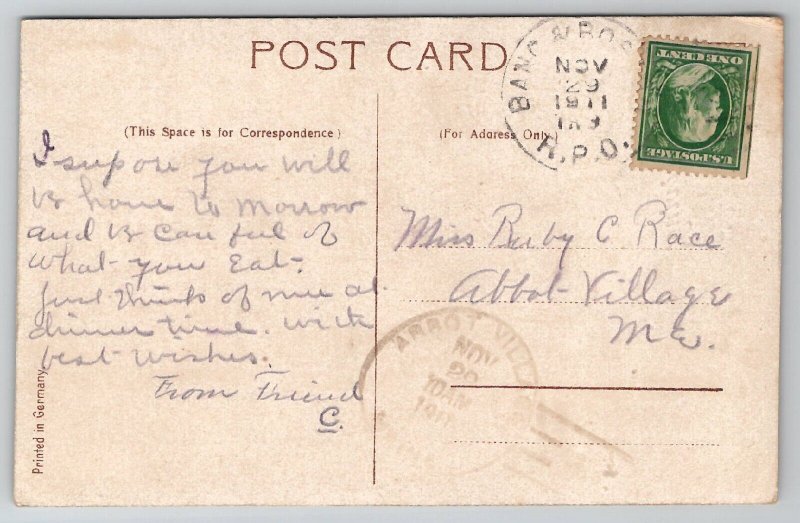 POST CARD
BANG & BOS
NOV
29
1911
R.P.O.
U.S. POSTAGE
ONE CENT
(This Space is for Correspondence)
(For Address Only)
I supose you will
B home to Morrow
and B Carful of
what you Eat.
Just think of me at
dinner time. With
best wishes.
From Friend
C.
Miss Ruby C Race
Abbot Village
Me.
ABBOT VILL
NOV
10AM
1911
Printed in Germany